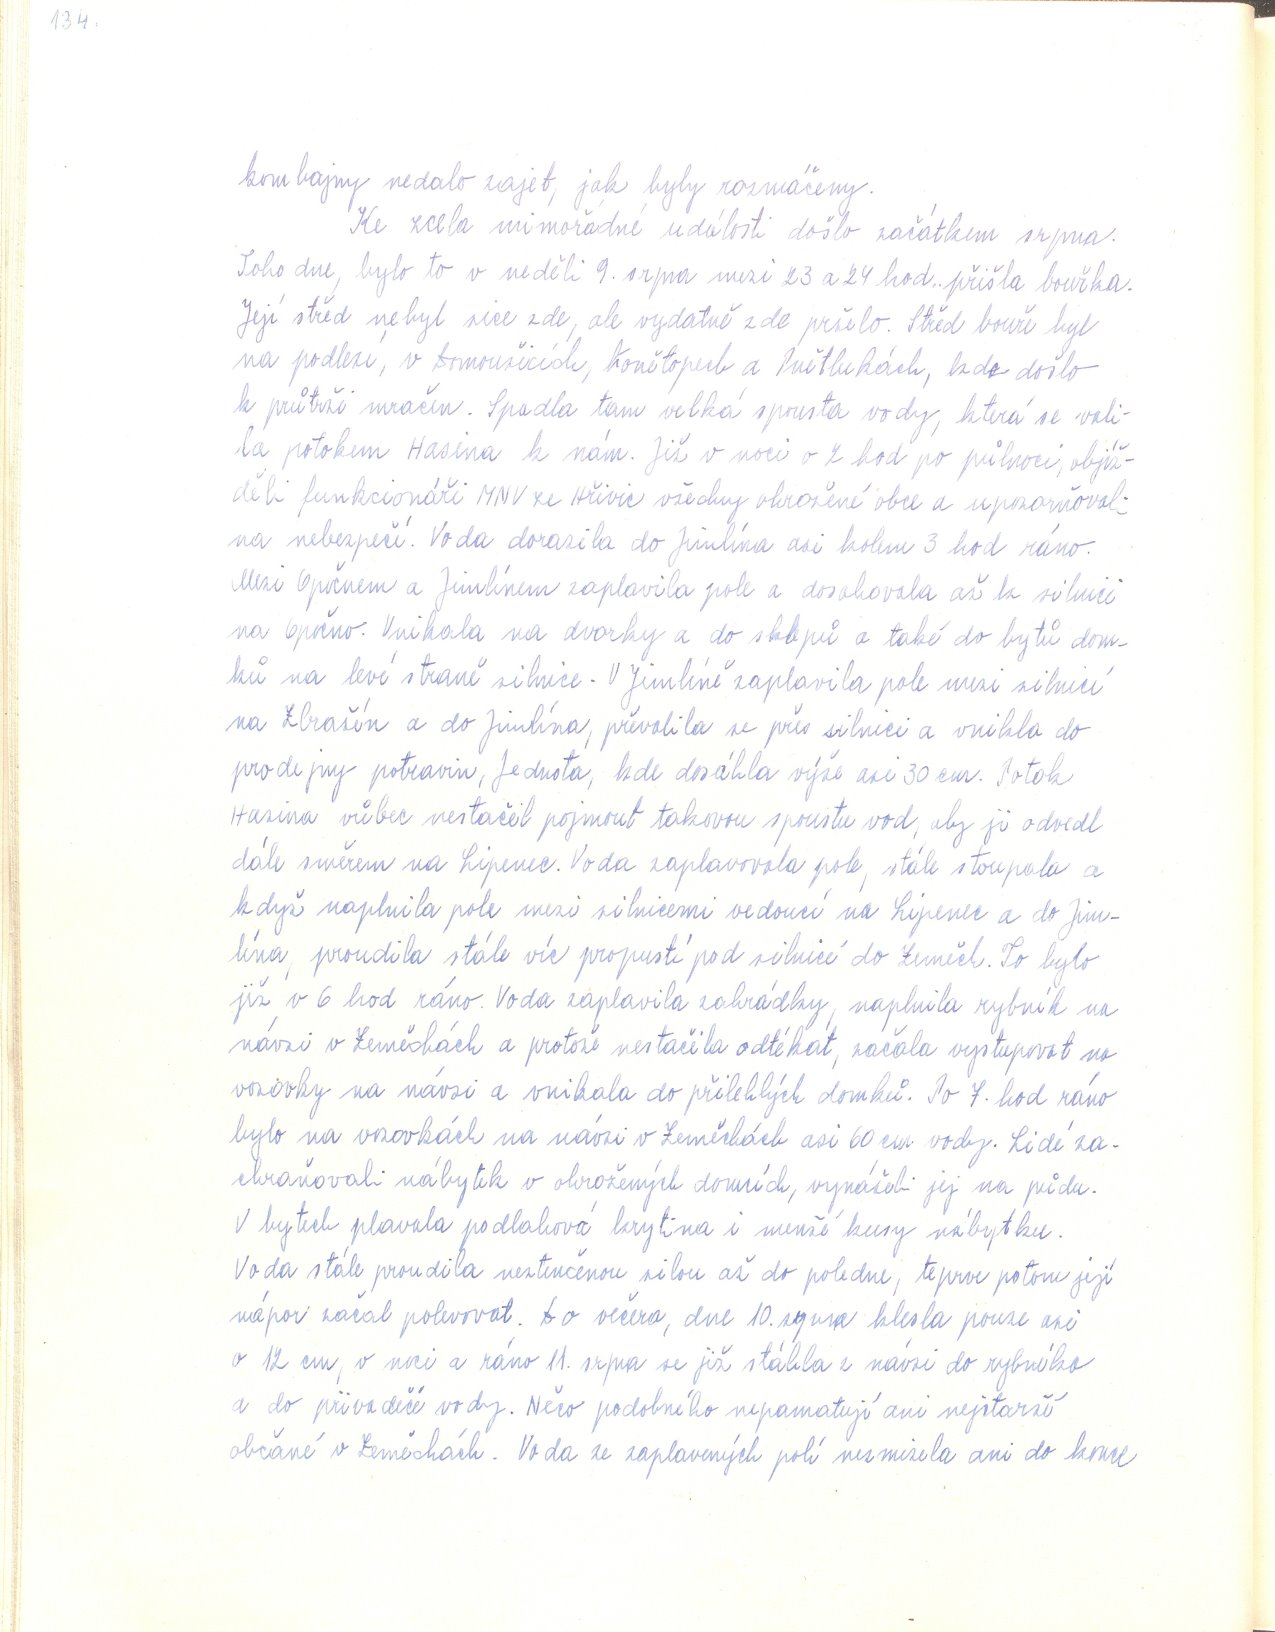 134.
kombajny nedalo zajet, jak byly rozmáčeny.
Ke zcela mimořádné události došlo začátkem srpna.
Toho dne, bylo to v neděli 9. srpna mezi 23 a 24 hod.. přišla bouřka.
Její střed nebyl sice zde, ale vydatně zde pršelo. Střed bouře byl
na podlesí, v Domoušicích, Konětopech a Pnětlukách, kde došlo
k průtrži mračen. Spadla tam velká spousta vody, která se vali-
la potokem Hasina k nám. Již v noci o 2 hod po půlnoci, objíž-
děli funkcionáři MNV ze Hřivic všechny ohrožené obce a upozorňovali
na nebezpečí. Voda dorazila do Jimlína asi kolem 3 hod ráno.
Mezi Opočnem a Jimlínem zaplavila pole a dosahovala až k silnici
na Opočno. Vnikala na dvorky a do sklepů a také do bytů dom-
ků na levé straně silnice. V Jimlíně zaplavila pole mezi silnicí
na Zbrašín a do Jimlína, převalila se přes silnici a vnikla do
prodejny potravin, Jednota, kde dosáhla výše asi 30 cm. Potok
Hasina vůbec nestačil pojmout takovou spoustu vod, aby ji odvedl
dále směrem na Lipenec. Voda zaplavovala pole, stále stoupala a
když naplnila pole mezi silnicemi vedoucí na Lipenec a do Jim-
lína, proudila stále víc propustí pod silnicí do Zeměch. To bylo
již v 6 hod ráno. Voda zaplavila zahrádky, naplnila rybník na
návsi v Zeměchách a protože nestačila odtékat, začala vystupovat na
vozovky na návsi a vnikala do přilehlých domků. Po 7. hod ráno
bylo na vozovkách na návsi v Zeměchách asi 60 cm vody. Lidé za-
chraňovali nábytek v ohrožených domcích, vynášeli jej na půdu.
V bytech plavala podlahová krytina i menší kusy nábytku.
Voda stále proudila neztenčenou silou až do poledne, teprve potom její
nápor začal polevovat. Do večera, dne 10. srpna klesla pouze asi
o 12 cm, v noci a ráno 11. srpna se již stáhla z návsi do rybníka
a do přivaděče vody. Něco podobného nepamatují ani nejstarší
občané v Zeměchách. Voda ze zaplavených polí nezmizela ani do konce